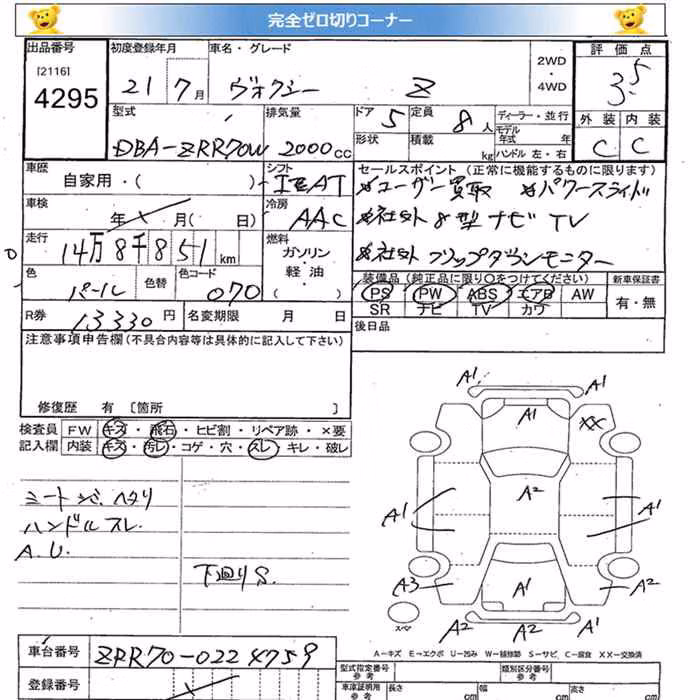 完全ゼロ切りコーナー
出品番号 初度登録年月 車名・グレード 2WD ・ 4WD 評価点
[2116]
4295
21 7月 ヴォクシー Z 3.5
型式 排気量 ドア 5 定員 8人 ディーラー・並行 外装 内装
DBA-ZRR70W 2000cc 形状 積載 kg モデル年式 年 ハンドル 左・右 C C
車歴 自家用・( ) シフト AT セールスポイント(正常に機能するものに限ります)
*ユーザー買取 *パワースライド
車検 年 月( 日) 冷房 AAC *社外8型ナビTV
走行 14万8千851km 燃料 ガソリン・軽油・( ) *社外フリップダウンモニター
色 パール 色替 色コード 070 装備品(純正品に限り○をつけてください) 新車保証書
PS PW ABS エアB AW 有・無
SR ナビ TV カワ
R券 13330円 名変期限 月 日 後日品
注意事項申告欄(不具合内容等は具体的に記入して下さい)
修復歴 有 [箇所 ]
検査員 FW キズ・飛石・ヒビ割・リペア跡・×要
記入欄 内装 キズ・汚レ・コゲ・穴・スレ・キレ・破レ
シートシミ、ヘタリ
ハンドルスレ.
A.U.
下回りS.
A1 A1
A1 XX
A2
A1 A1
A3 A1 A2
A2 A2 A1
スペア
A-キズ E-エクボ U-凹み W-補修跡 S-サビ C-腐食 XX-交換済
車台番号 ZRR70-0224759
登録番号
型式指定番号 参考 類別区分番号 参考
車庫証明用 参考 長さ cm 幅 cm 高さ cm